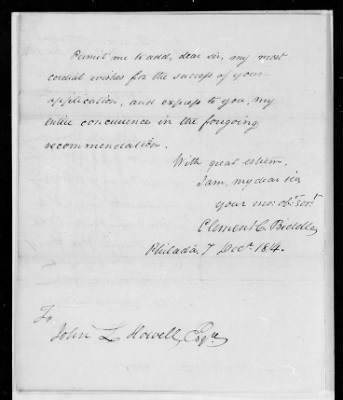 Permit me to add, dear sir, my most
cordial wishes for the success of your
application, and express to you, my
entire concurrence in the foregoing
recommendation.
With great esteem,
I am, my dear sir,
your mo: obt. servt.
Clement C. Biddle
Philada. 7 Decr. 1814.
To
John L Howell, Esqr.